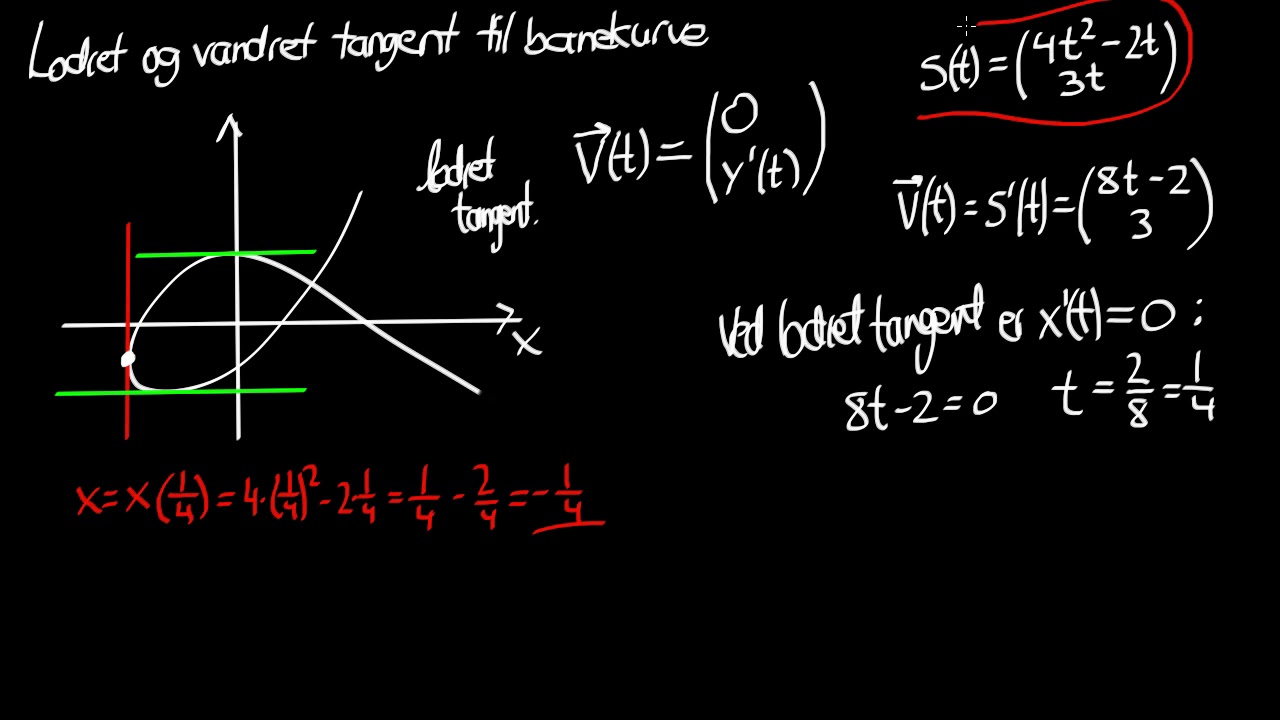 Lodret og vandret tangent til banekurve
s(t) = (4t² - 2t
3t)
lodret
tangent.
V⃗(t) = (0
y'(t))
V⃗(t) = s'(t) = (8t - 2
3)
Ved lodret tangent er x'(t) = 0 :
8t - 2 = 0 t = 2/8 = 1/4
x
x = x(1/4) = 4·(1/4)² - 2·1/4 = 1/4 - 2/4 = -1/4